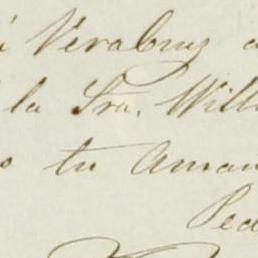 á Verabruz a
la Sra. Will
tu Aman
Ped